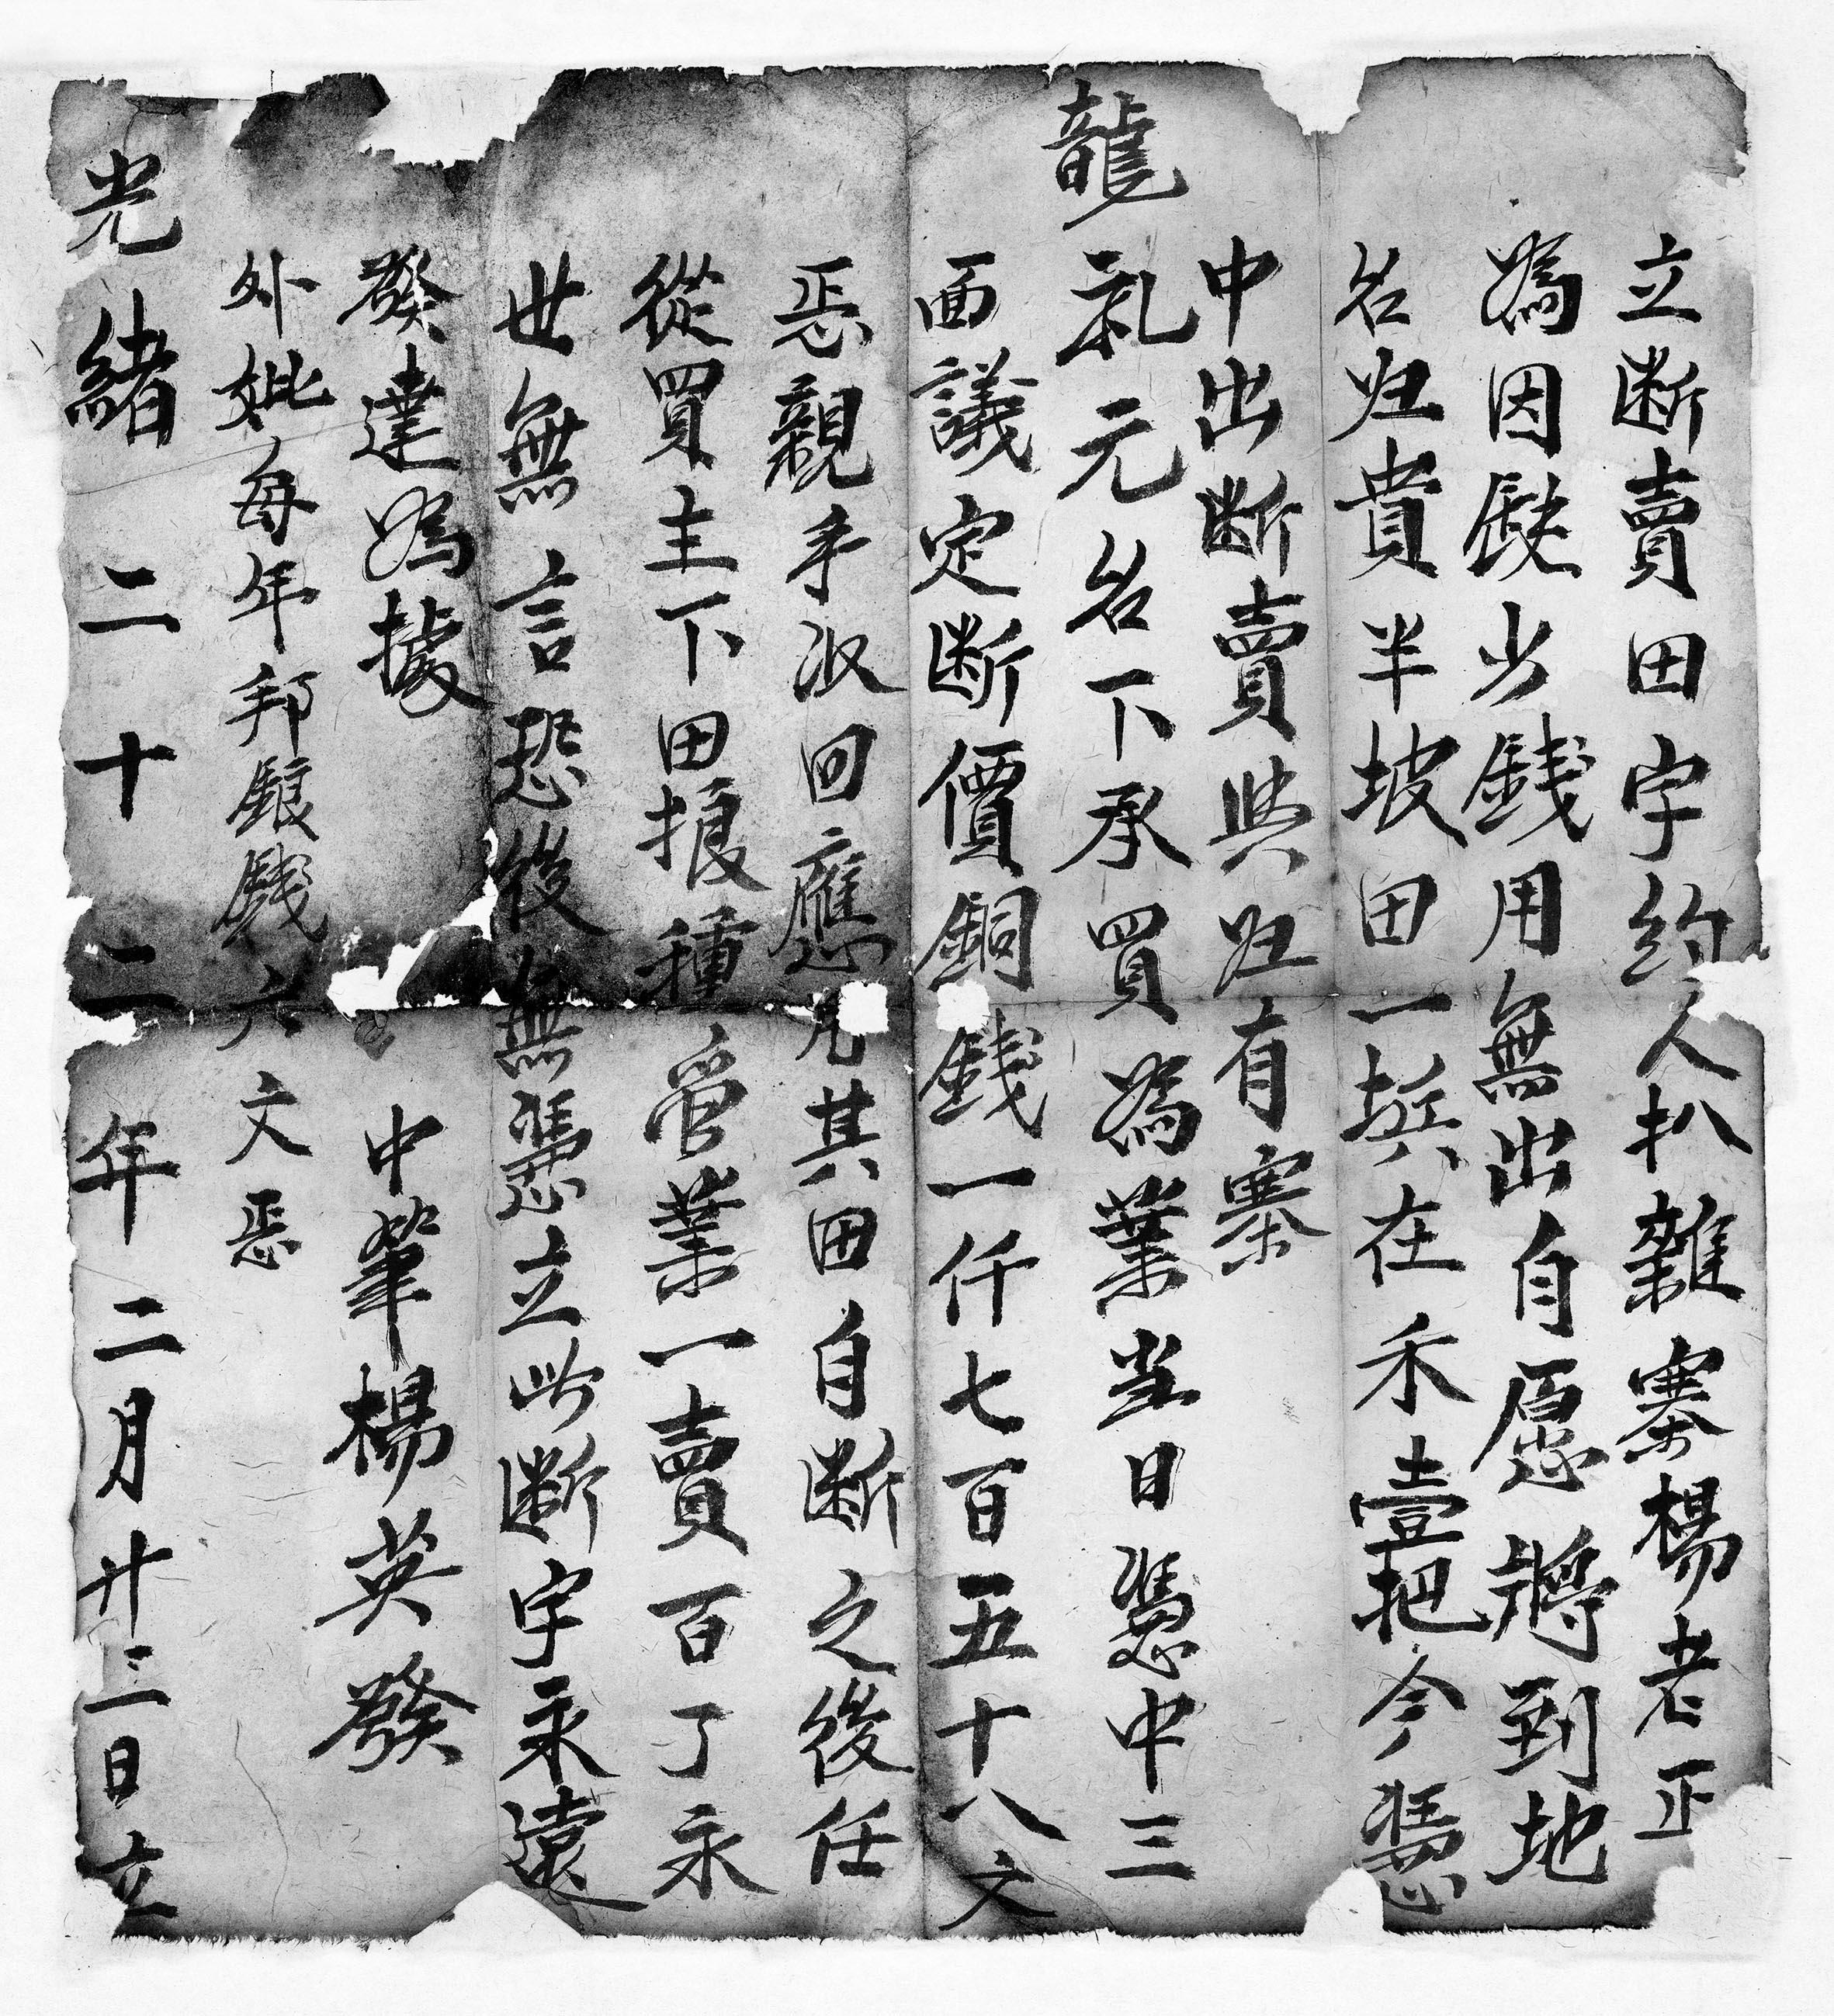 立断賣田字約人扒雜寨楊老正
為因缺少錢用無出自愿將到地
名归貴半坡田一坵在禾壹把今憑
中出断賣與归有寨
龍礼元名下承買為業当日憑中三
面議定断價銅錢一仟七百五十八文
恶親手收回應凡其田自断之後任
從買主下田掁種管業一賣百了永
世無言恐後無憑立此断字永遠
發達為據
中筆楊英發
外妣每年邦銀錢六文恶
光緒二十二年二月廿三日立